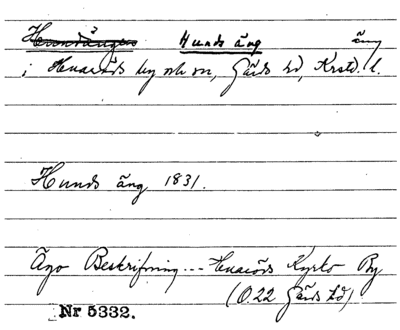 Hunds äng äng
i Huaröds by och sn, Gärds hd, Krstd. l.
Hunds äng 1831.
Ägo Beskrifning... Huaröds Kyrko By
(O.22 Gärds hd)
Nr 5332.